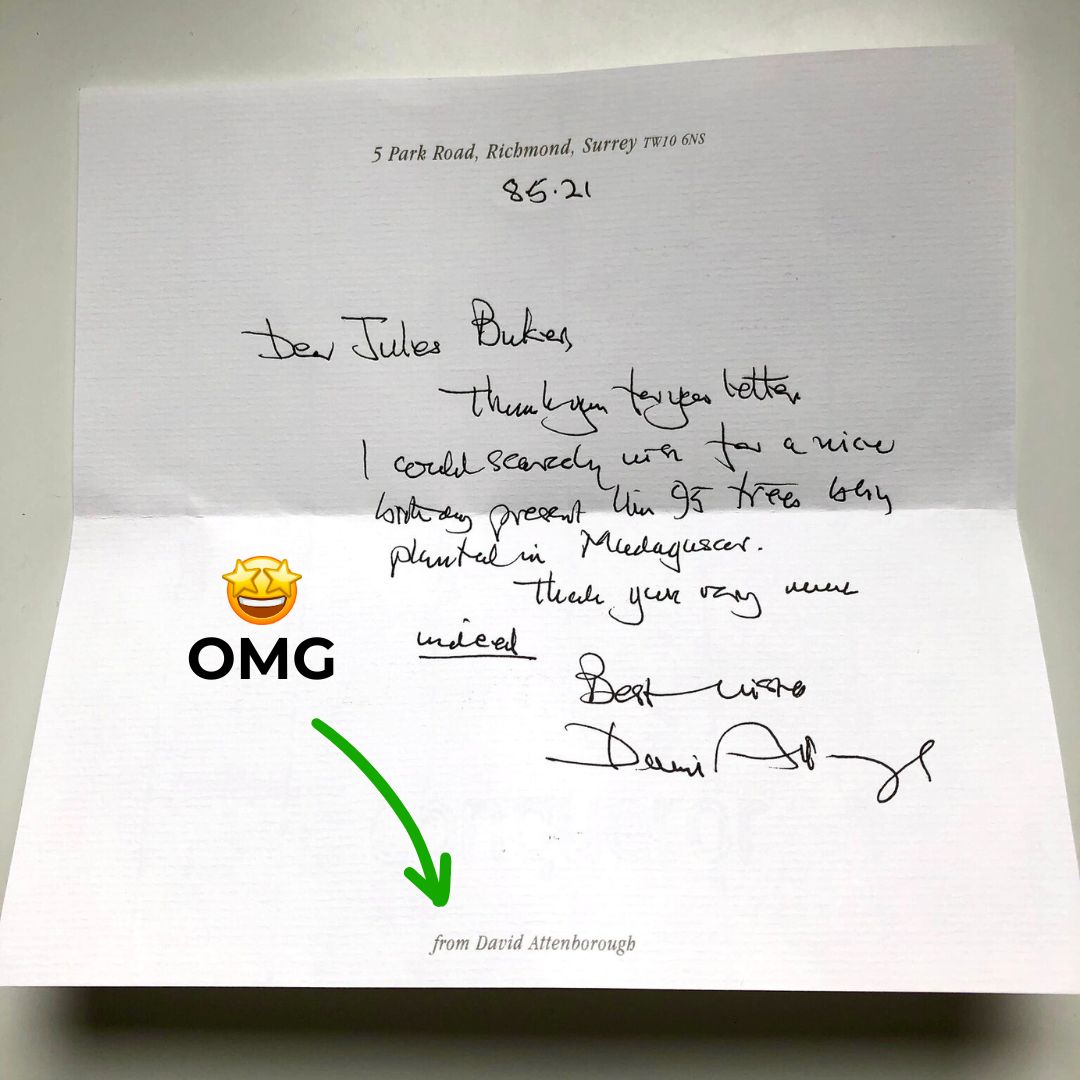 5 Park Road, Richmond, Surrey TW10 6NS
8.5.21
Dear Jules Bukers,
Thank you for your letter.
I could scarcely wish for a nicer
birthday present than 95 trees being
planted in Madagascar.
Thank you very much
indeed
Best wishes
David Attenborough
OMG
from David Attenborough